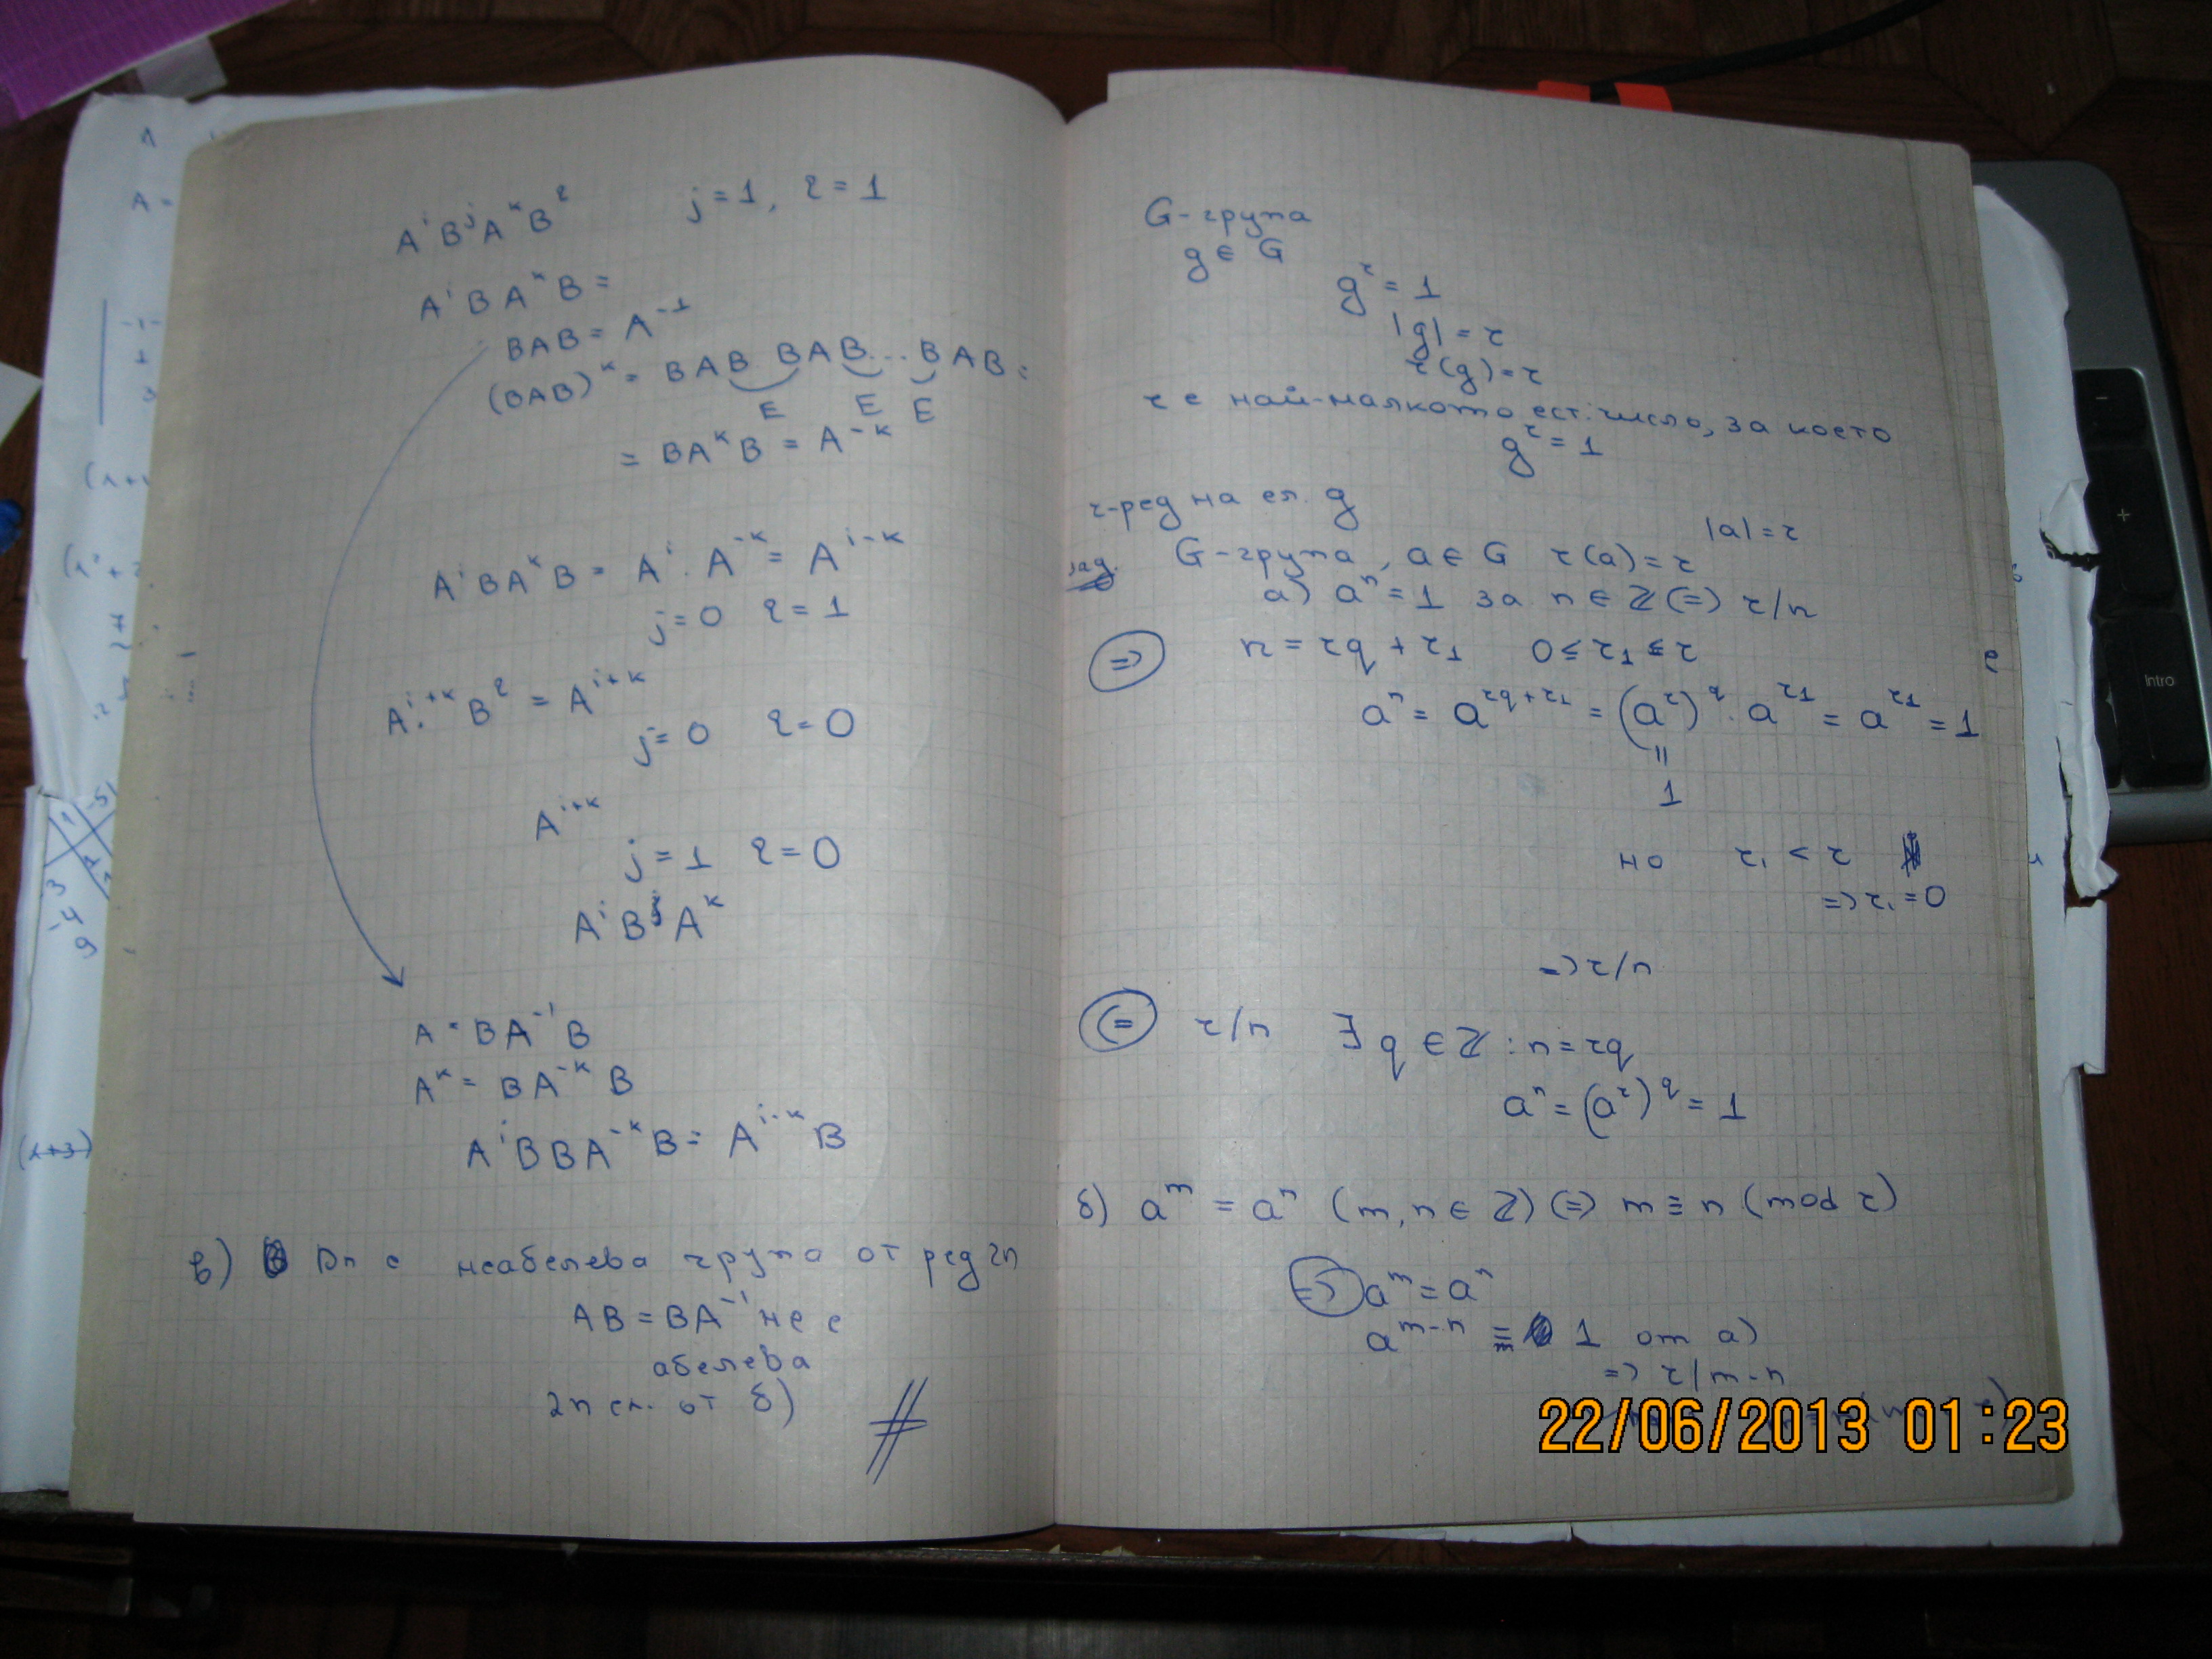 AⁱBʲAᵏBˡ j=1, l=1
AⁱBAᵏB=
BAB=A⁻¹
(BAB)ᵏ= BAB BAB...BAB=
E E E
= BAᵏB = A⁻ᵏ
AⁱBAᵏB = Aⁱ.A⁻ᵏ = Aⁱ⁻ᵏ
j=0 l=1
Aⁱ⁺ᵏBˡ = Aⁱ⁺ᵏ
j=0 l=0
Aⁱ⁺ᵏ
j=1 l=0
AⁱBʲAᵏ
A=BA⁻¹B
Aᵏ=BA⁻ᵏB
AⁱBBA⁻ᵏB=Aⁱ⁻ᵏB
в) Dn е неабелева група от ред 2n
AB=BA⁻¹ не е
абелева
2n ел. от б)
G-група
g∈G
gʳ=1
|g|=r
r(g)=r
r е най-малкото ест. число, за което
gʳ=1
r-ред на ел. g
|a|=r
зад. G-група, a∈G r(a)=r
а) aⁿ=1 за n∈ℤ <=> r/n
=> n=rq+r₁ 0≤r₁≤r
aⁿ=a^(rq+r₁)=(aʳ)^q.a^(r₁)=a^(r₁)=1
=
1
но r₁<r
=>r₁=0
=>r/n
<= r/n ∃q∈ℤ:n=rq
aⁿ=(aʳ)^q=1
б) aᵐ=aⁿ (m,n∈ℤ) <=> m≡n(mod r)
=> aᵐ=aⁿ
aᵐ⁻ⁿ = 1 от а)
=> r/m-n
22/06/2013 01:23
Intro